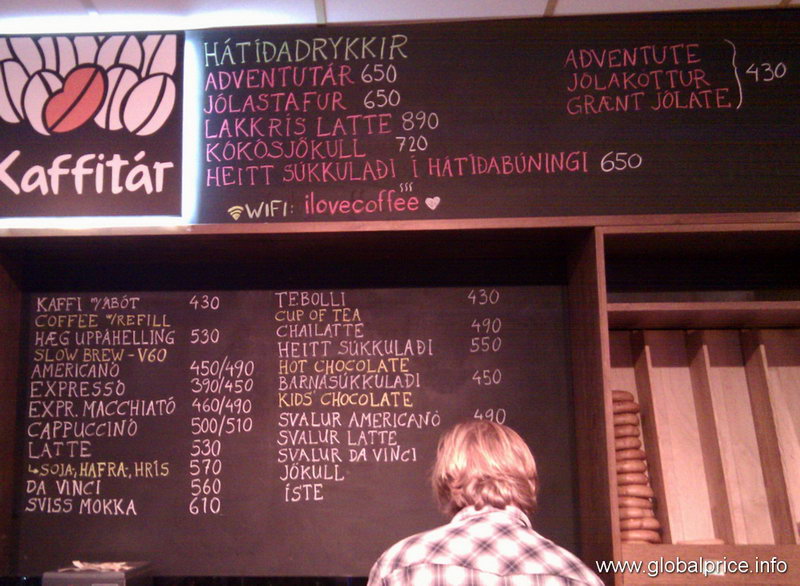 Kaffitár
HÁTÍÐADRYKKIR
ADVENTUTÁR 650
JÓLASTAFUR 650
LAKKRÍS LATTE 890
KÓKÓSJÖKULL 720
HEITT SÚKKULAÐI Í HÁTÍÐABÚNINGI 650
WIFI: ilovecoffee
ADVENTUTE
JÓLAKÖTTUR
GRÆNT JÓLATE
430
KAFFI M/ÁBÓT 430
COFFEE W/REFILL
HÆG UPPÁHELLING 530
SLOW BREW - V60
AMERICANO 450/490
EXPRESSO 390/450
EXPR. MACCHIATÓ 460/490
CAPPUCCINÓ 500/510
LATTE 530
↳SOJA, HAFRA, HRÍS 570
DA VINCI 560
SVISS MOKKA 610
TEBOLLI 430
CUP OF TEA
CHAILATTE 490
HEITT SÚKKULAÐI 550
HOT CHOCOLATE
BARNASÚKKULAÐI 450
KIDS' CHOCOLATE
SVALUR AMERICANÓ 490
SVALUR LATTE
SVALUR DA VINCI
JÖKULL
ÍSTE
www.globalprice.info